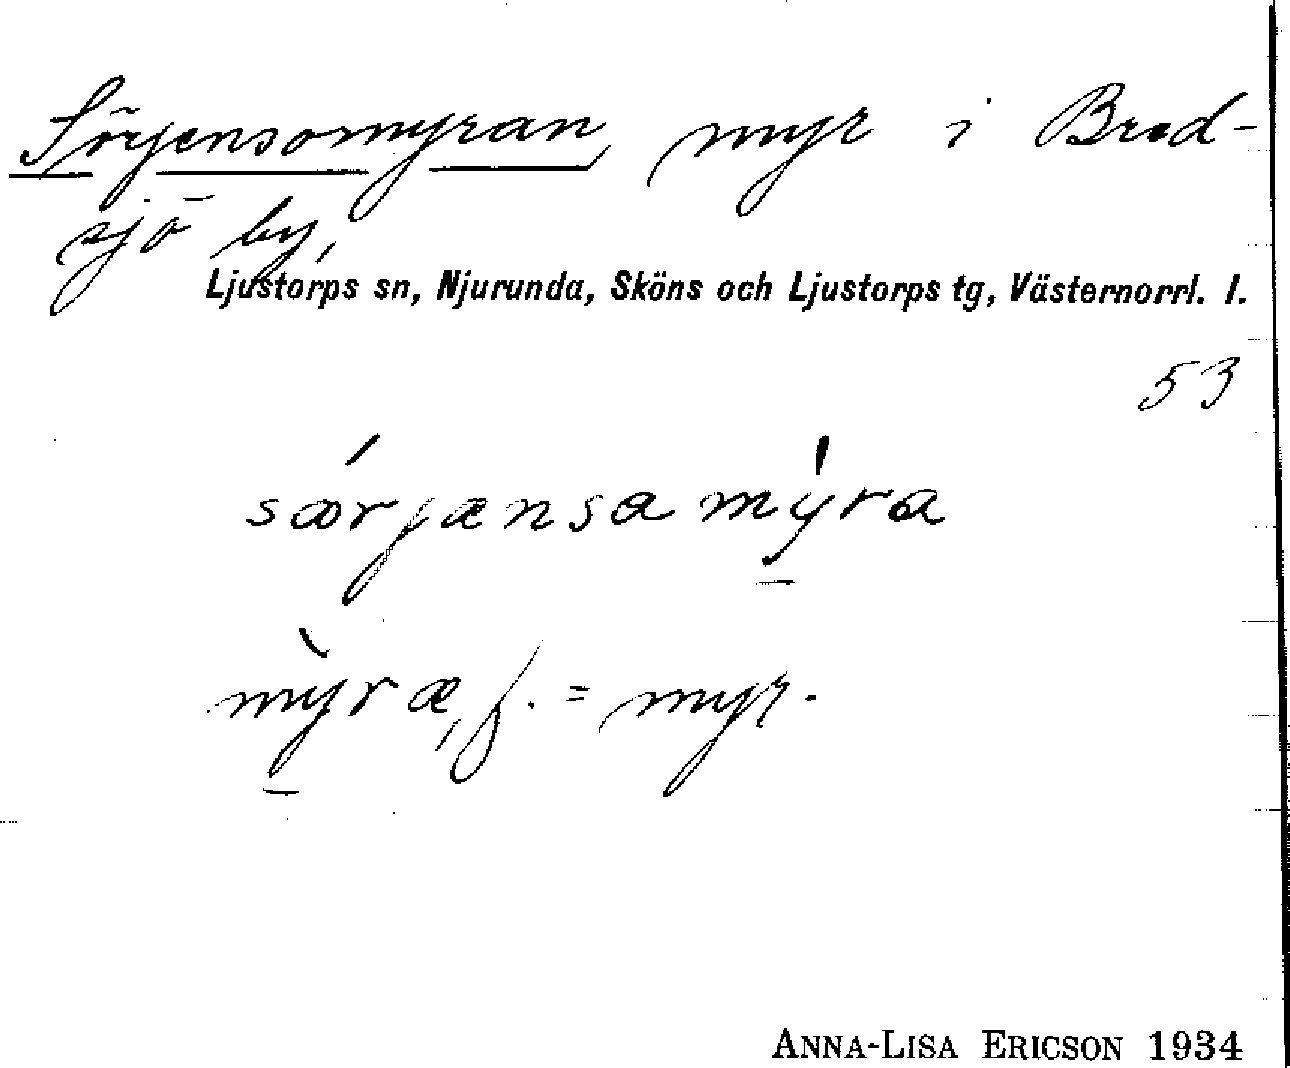 Sörjensomyran myr i Bred-
sjö by,
Ljustorps sn, Njurunda, Sköns och Ljustorps tg, Västernorrl. l.
53
særjænsamýra
mỳræ, f. = myr.
ANNA-LISA ERICSON 1934